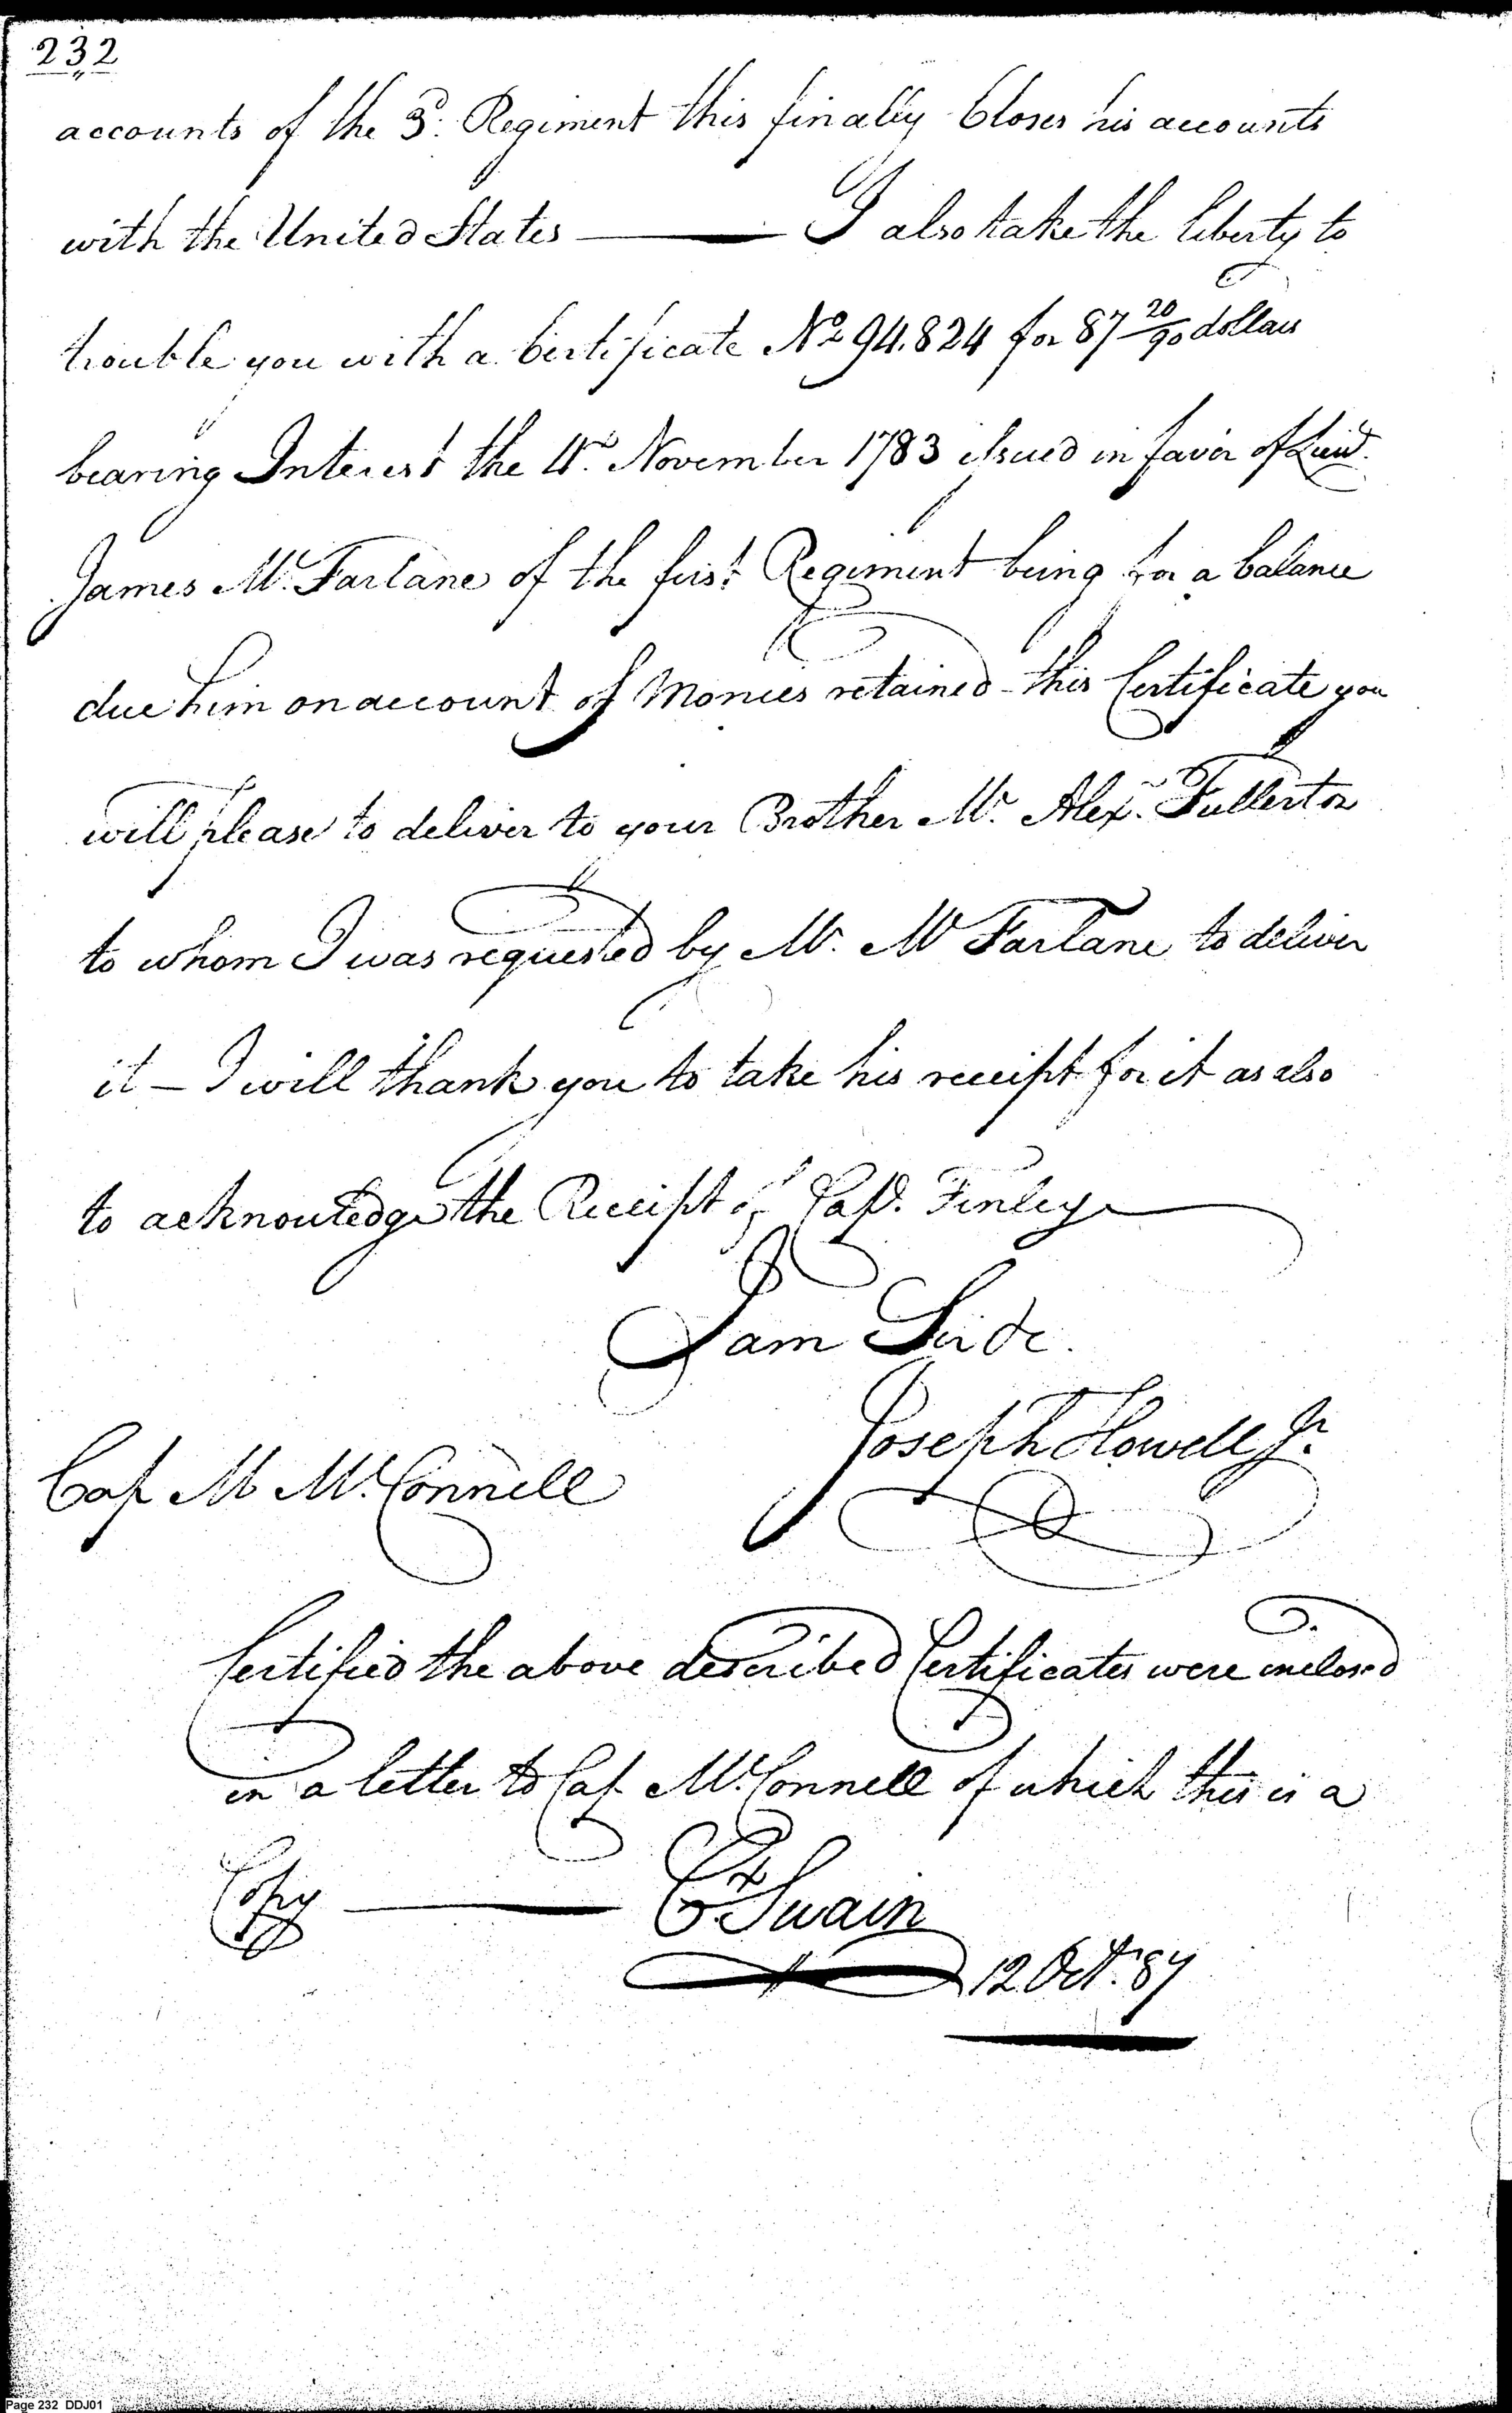 232
accounts of the 3d. Regiment this finally Closes his accounts
with the United States —— I also take the liberty to
trouble you with a Certificate No 94.824 for 87 20/90 dollars
bearing Interest the 4th. November 1783 issued in favor of Lieut.
James Mc. Farlane of the first Regiment being for a balance
due him on account of Monies retained - this Certificate you
will please to deliver to your Brother Mr. Alexr. Fullerton
to whom I was requested by Mr. Mc Farlane to deliver
it — I will thank you to take his receipt for it as also
to acknowledge the Receipt of Capt. Finley
I am Sir &c.
Joseph Howell Jr.
Cap M Mc. Connell
Certified the above described Certificates were inclosed
in a letter to Cap Mc. Connell of which this is a
Copy —— Swain
12 Oct. 87
Page 232 DDJ01